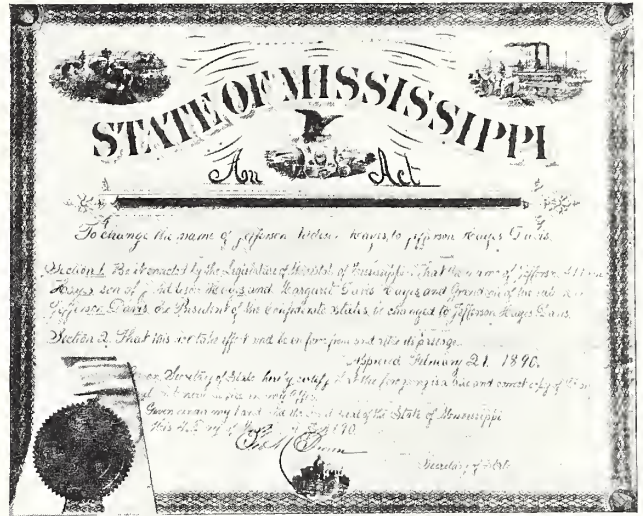 STATE OF MISSISSIPPI
An Act
To change the name of Jefferson Addison Hayes, to Jefferson Hayes Davis.
Section 1. Be it enacted by the Legislature of the State of Mississippi, That the name of Jefferson Addison
Hayes son of J. Addison Hayes and Margaret Davis Hayes and Grandson of the late
Jefferson Davis, Ex President of the Confederate States, is changed to Jefferson Hayes Davis.
Section 2. That this act take effect and be in force from and after its passage.
Approved February 21. 1890.
Secretary of State hereby certify that the foregoing is a true and correct copy of the
now on file in my office.
Given under my hand and the Great seal of the State of Mississippi
this day of 1890.
Secretary of State